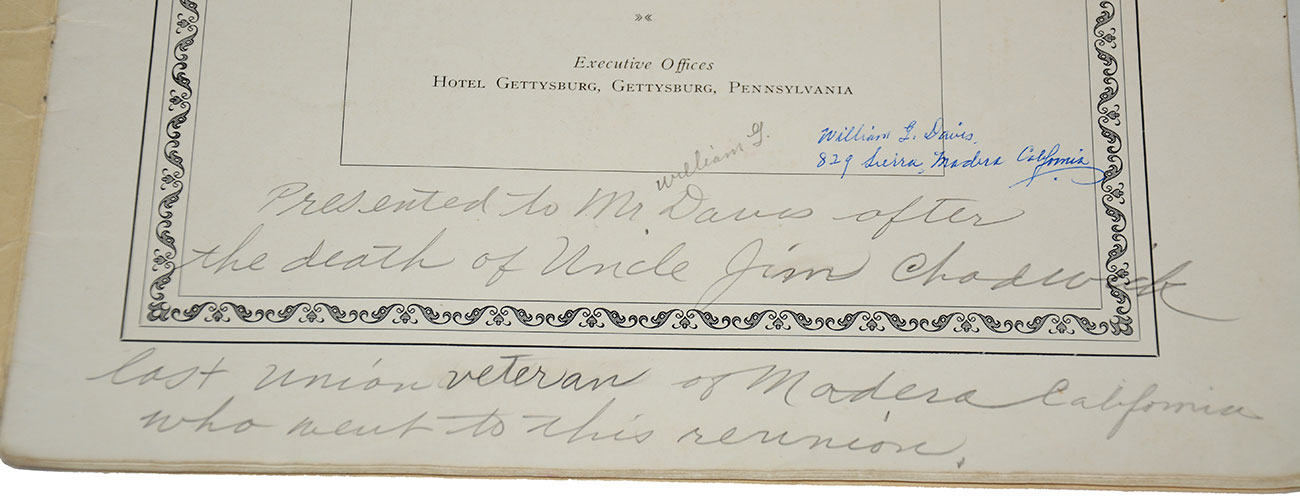 Executive Offices
HOTEL GETTYSBURG, GETTYSBURG, PENNSYLVANIA
William G. Davis,
829 Sierra, Madera California
William G.
Presented to Mr Davis after
the death of Uncle Jim Chadwick
last union veteran of Madera California
who went to this reunion.